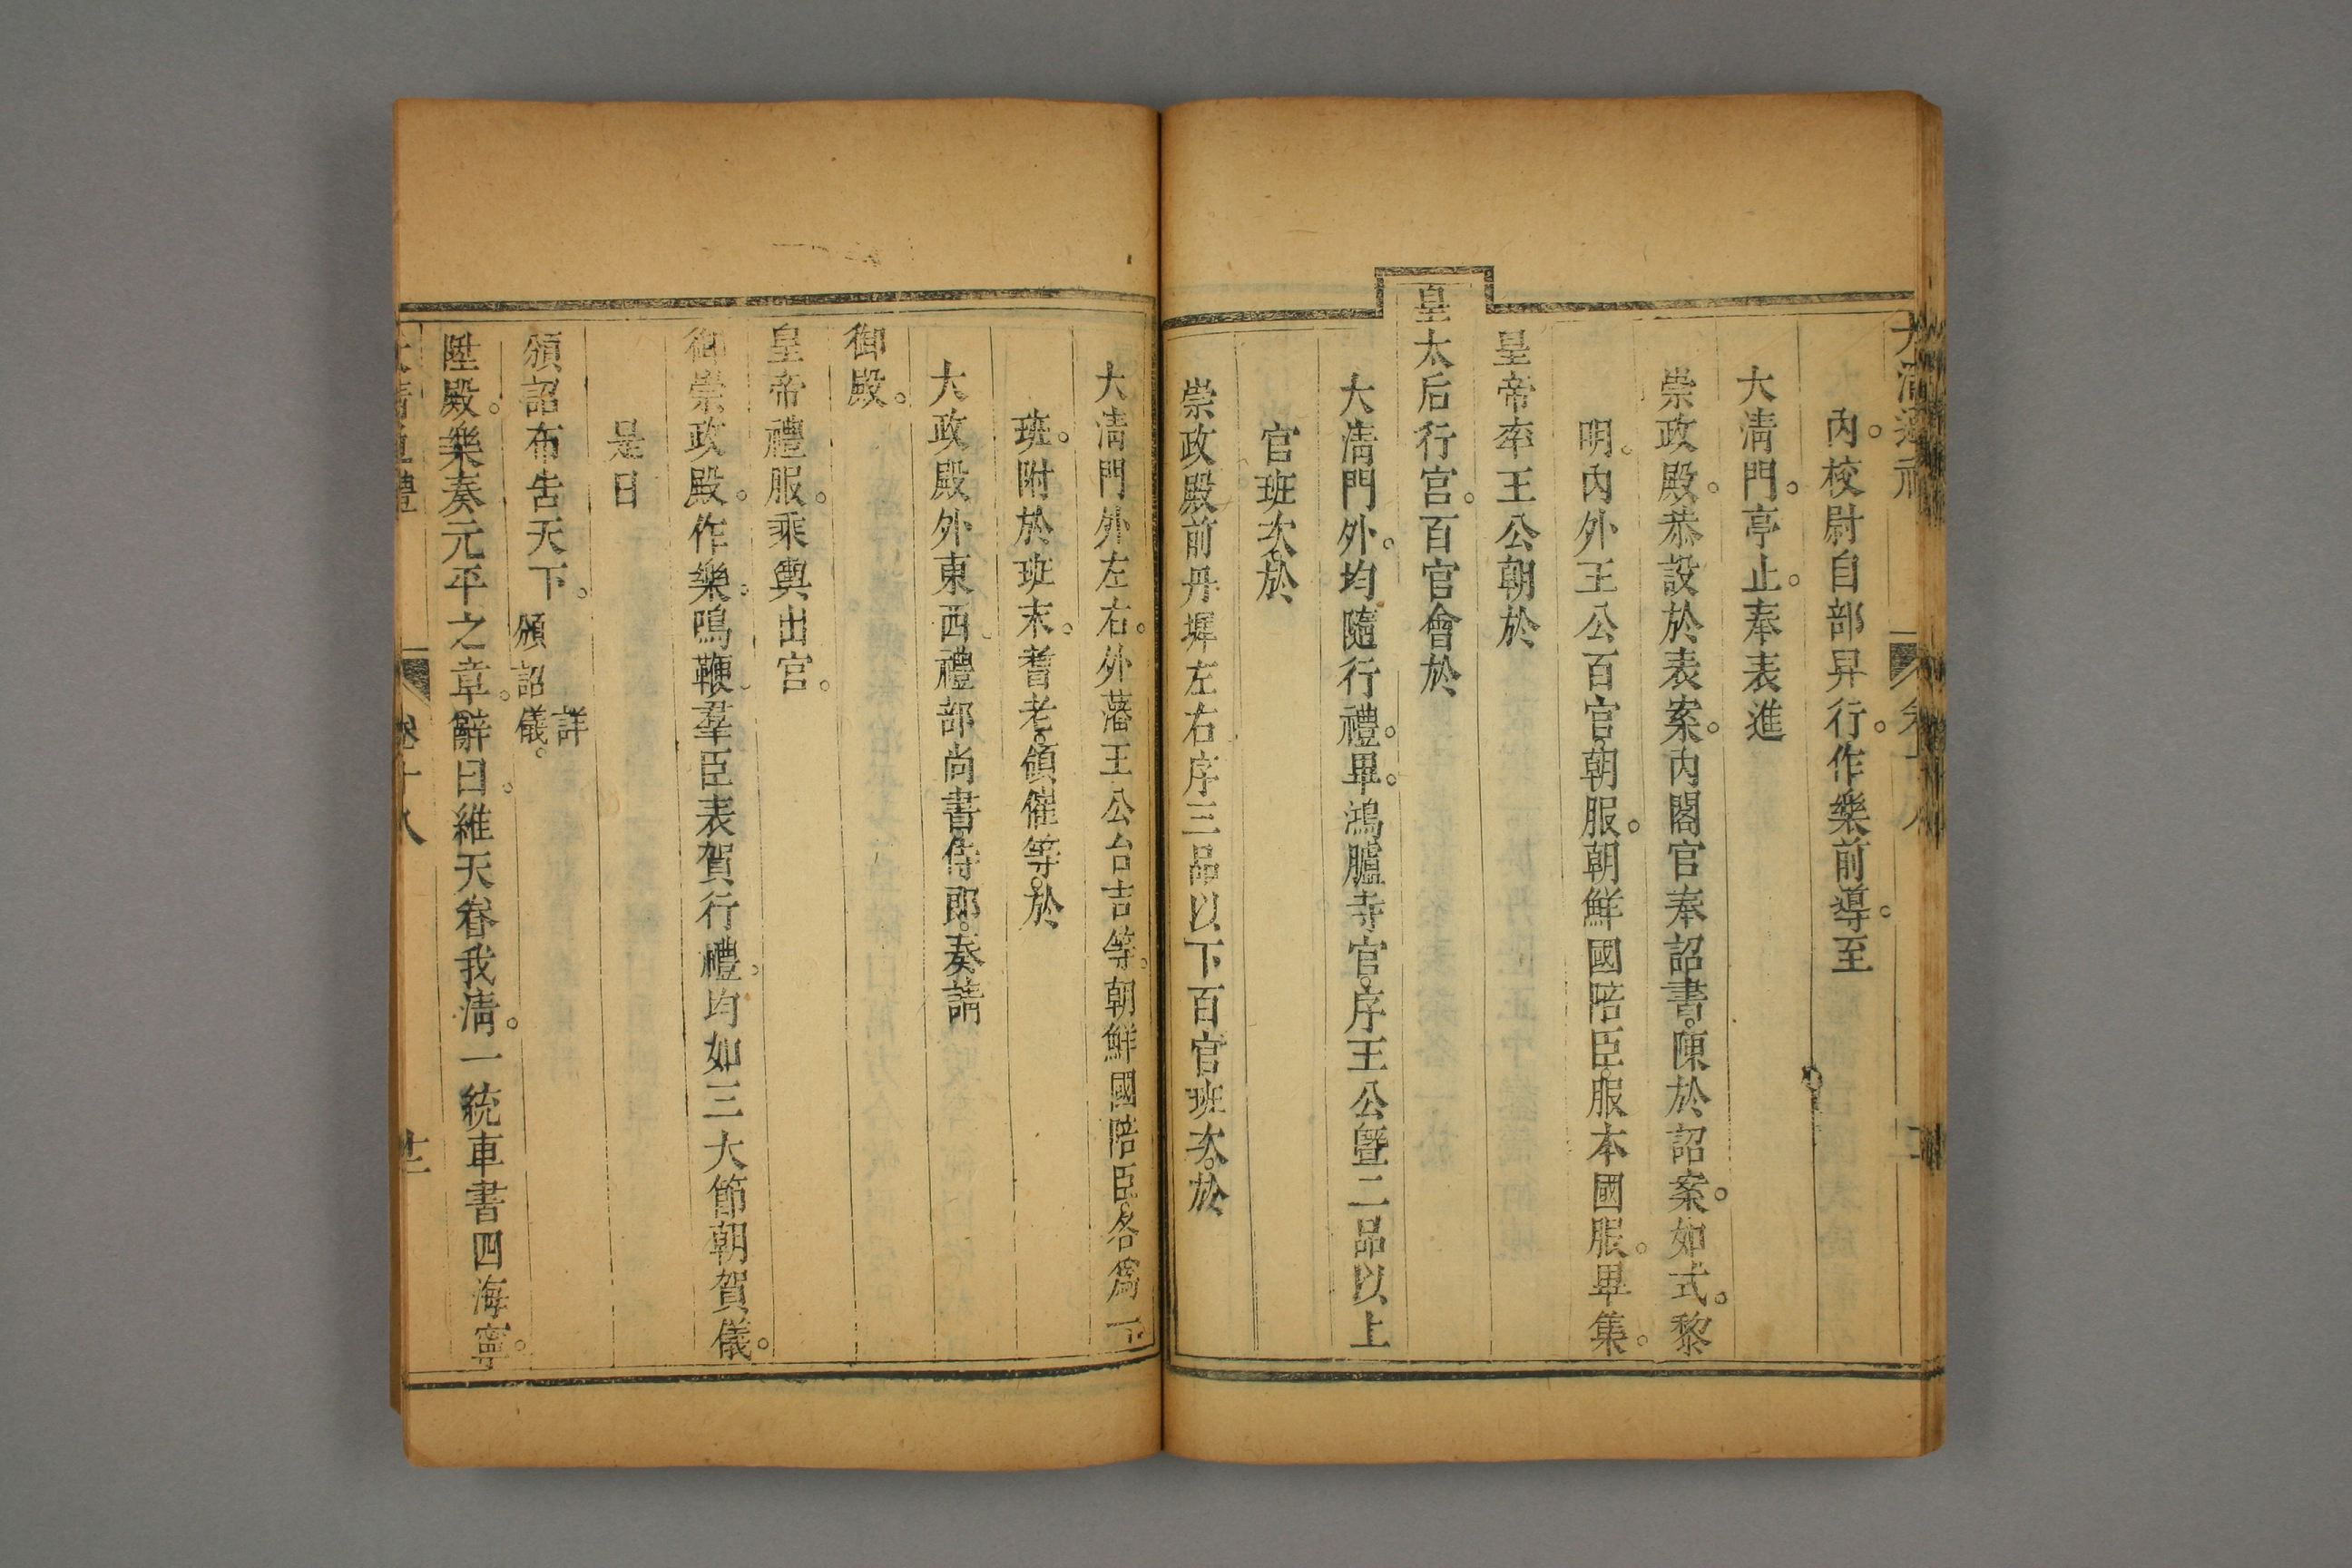 大清通禮 卷十八
內。校尉自部舁行。作樂前導。至
大清門。亭止。奉表進
崇政殿。恭設於表案。內閣官奉詔書。陳於詔案。如式。黎
明。內外王公百官。朝服。朝鮮國陪臣。服本國服。畢集。
皇帝率王公朝於
皇太后行宮。百官會於
大清門外。均隨行禮。畢。鴻臚寺官。序王公暨二品以上
官班次。於
崇政殿前丹墀左右序三品以下百官班次。於
大清門外左右。外藩王公台吉等。朝鮮國陪臣。各爲一
班。附於班末。耆老。領催等。於
大政殿外東西禮部尚書侍郎。奏請
御殿。
皇帝禮服。乘輿出宮。
御崇政殿。作樂。鳴鞭。羣臣表賀行禮。均如三大節朝賀儀。
是日
頒詔布告天下。頒詔儀。詳
陞殿。樂奏元平之章。辭曰。維天眷我清。一統車書四海寧。
大清通禮 卷十八 廿